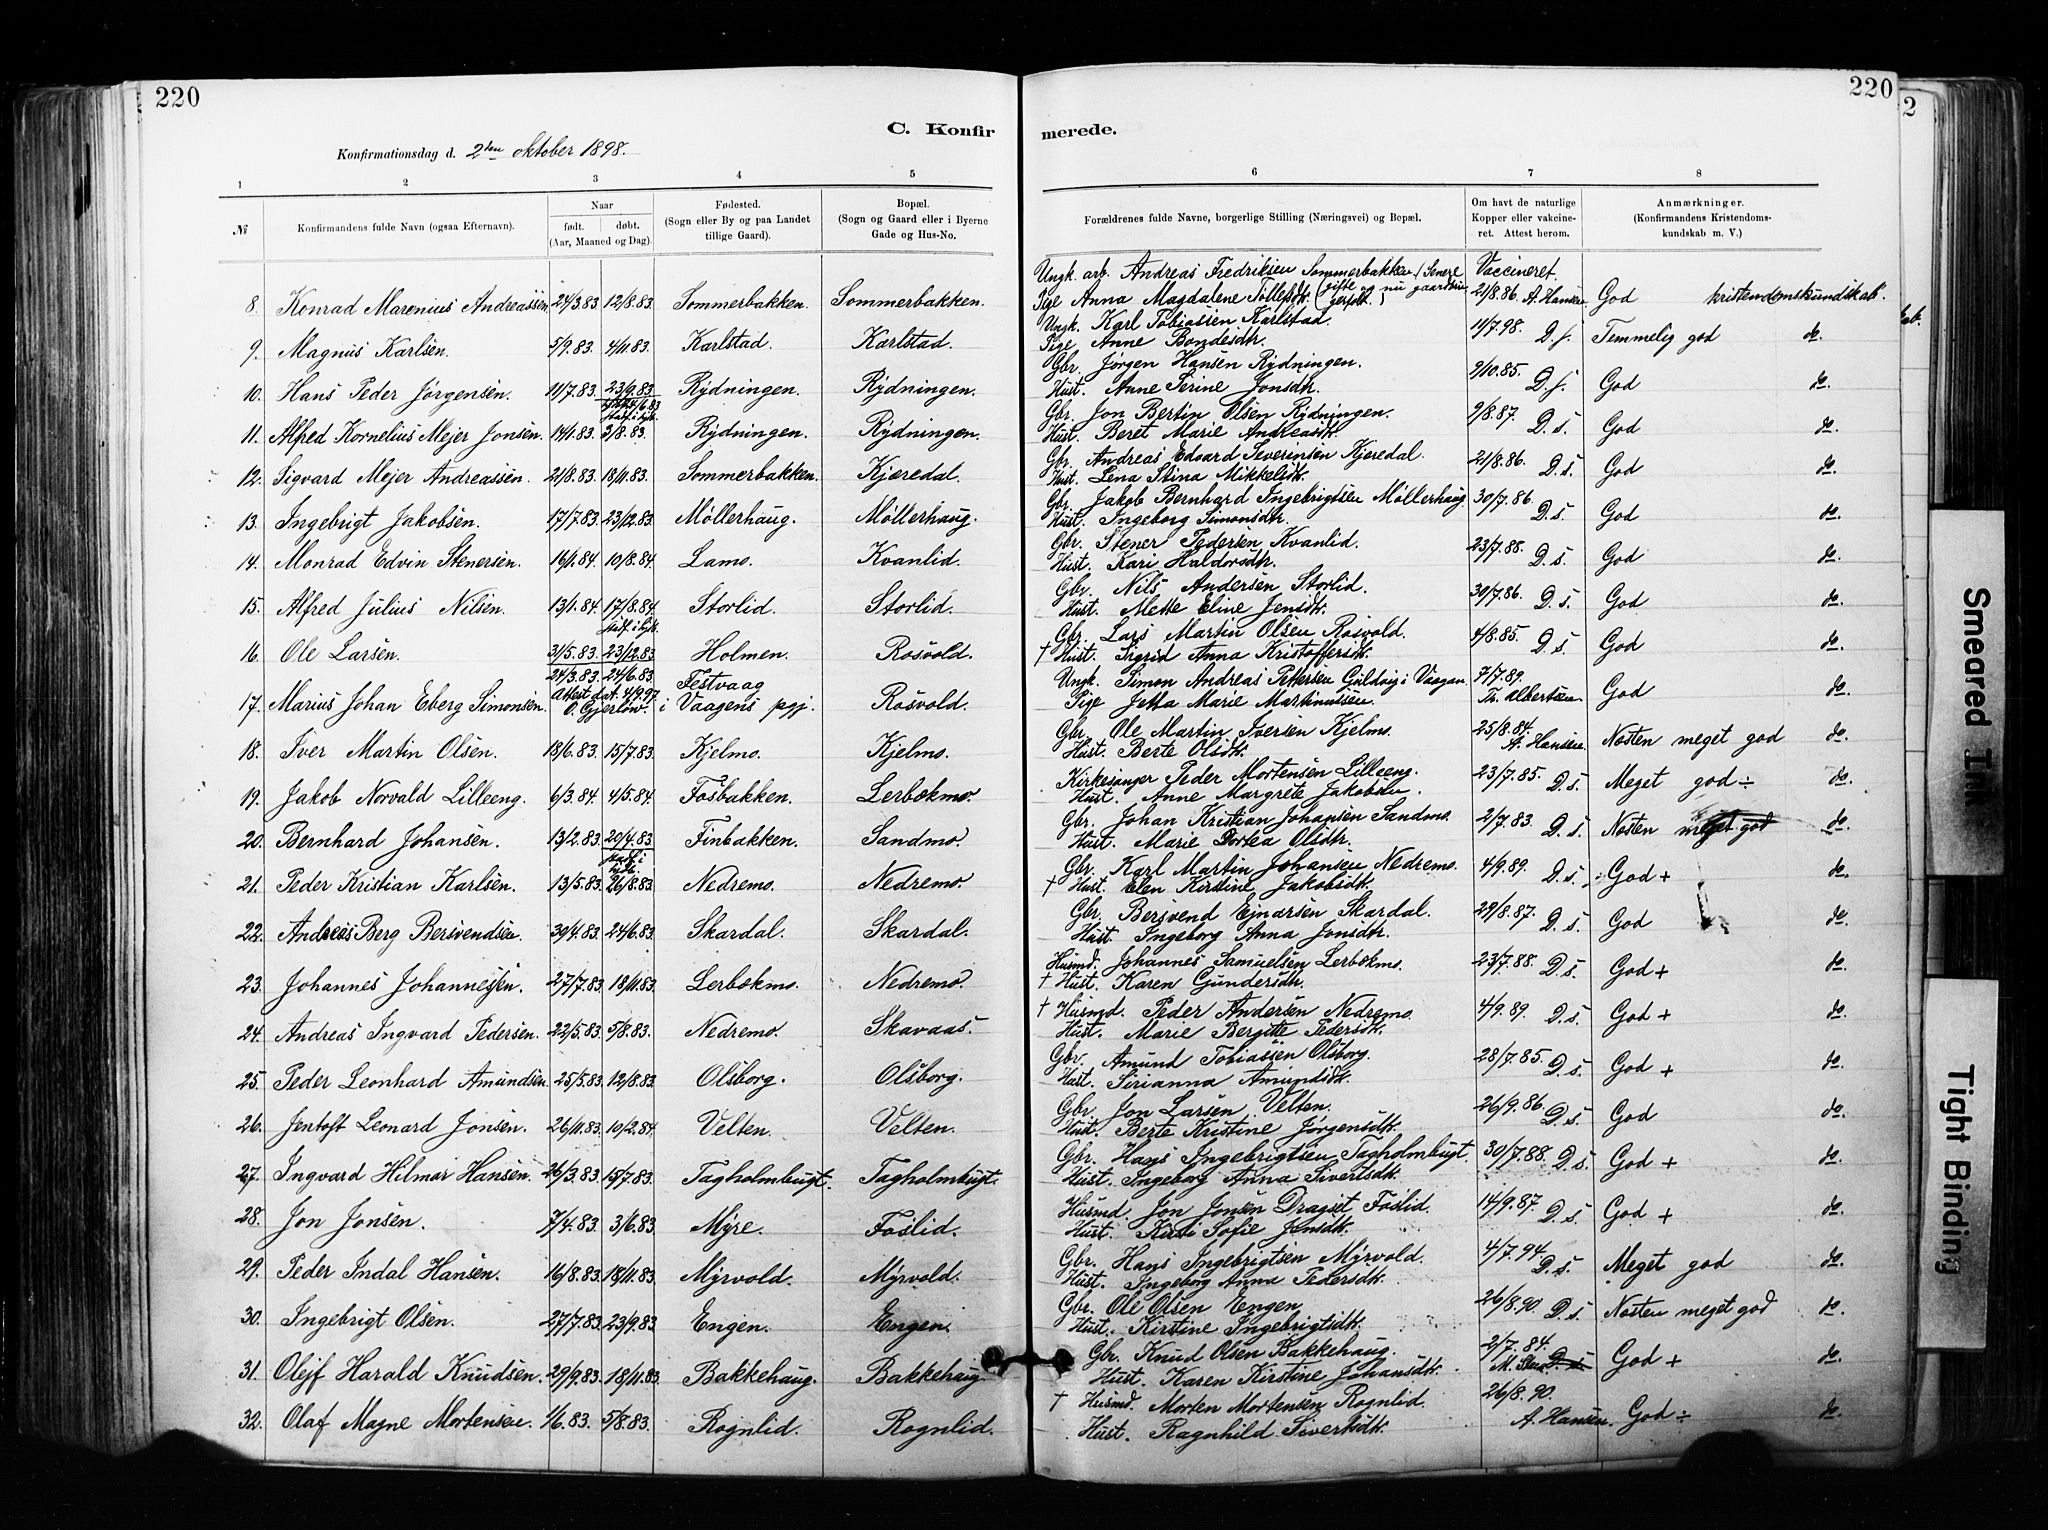 220
220
2
C. Konfir
merede.
Konfirmationsdag d. 2den oktober 1898.
1 2 3 4 5 6 7 8
№ Konfirmandens fulde Navn (ogsaa Efternavn). Naar født. døbt. (Aar, Maaned og Dag). Fødested. (Sogn eller By og paa Landet tillige Gaard). Bopæl. (Sogn og Gaard eller i Byerne Gade og Hus-No. Forældrenes fulde Navne, borgerlige Stilling (Næringsvei) og Bopæl. Om havt de naturlige Kopper eller vakcineret. Attest herom. Anmærkninger. (Konfirmandens Kristendomskundskab m. V.)
Ungk. arb. Andreas Fredriksen Sommerbakken (Senere Vaccineret
8. Konrad Marenius Andreassen 24/3.83 12/8.83. Sommerbakken. Sommerbakken. Pige Anna Magdalene Tollefsdt. gifte og nu gaardbru- 21/8.86. A. Hansen God kristendomskundskab.
9. Magnus Karlsen. 5/9.83. 4/11.83. Karlstad. Karlstad. Ungk. Karl Tobiassen Karlstad. Pige Anne Bondesdtr. 11/7.98. D.s. Temmelig god do.
10. Hans Peder Jørgensen. 11/7.83. 23/9.83 Rydningen. Rydningen. Gbr. Jørgen Hansen Rydningen. Hust. Anne Serine Jonsdtr. 2/10.85. D.s. God do.
11. Alfred Kornelius Mejer Jonsen. 14/1.83. 5/8.83. Rydningen. Rydningen. Gbr. Jon Bertin Olsen Rydningen. Hust. Beret Marie Andreasdtr. 9/8.87. D.s. God do.
12. Sigvard Mejer Andreassen. 21/8.83. 18/11.83. Sommerbakken. Kjæredal. Gbr. Andreas Edvard Severinsen Kjæredal. Hust. Lena Stina Mikkelsdtr. 21/8.86. D.s. God do.
13. Ingebrigt Jakobsen. 17/7.83. 23/12.83. Møllerhaug. Møllerhaug. Gbr. Jakob Bernhard Ingebrigtsen Møllerhaug. Hust. Ingeborg Simonsdtr. 30/7.86. D.s. God do.
14. Monrad Edvin Stenersen. 16/1.84. 10/8.84. Lamo. Kvanlid. Gbr. Stener Pedersen Kvanlid. Hust. Kari Haldorsdtr. 23/7.88. D.s. God do.
15. Alfred Julius Nilsen. 13/1.84. 17/8.84. Storlid. Storlid. Gbr. Nils Andersen Storlid. Hust. Mette Eline Jensdtr. 30/7.86. D.s. God do.
16. Ole Larsen. 31/5.83. 23/12.83 Holmen. Rosvold. Gbr. Lars Martin Olsen Rosvold. † Hust. Sigrid Anna Kristoffersdtr. 4/8.85. D.s. God do.
17. Marius Johan Eberg Simonsen. 24/3.83. 24/6.83. Attest dat. 4/9.97. O. Gjerløw. Festvaag i Vaagens pgj. Rosvold. Ungk. Simon Andreas Pettersen Guldvig i Vaagan. Pige Jetta Marie Martinussen. 7/7.89. Th. Albertsen God do.
18. Iver Martin Olsen. 18/6.83. 15/7.83. Kjelmo. Kjelmo. Gbr. Ole Martin Iversen Kjelmo. Hust. Berte Olsdtr. 25/8.84. A. Hansen Næsten meget god do.
19. Jakob Norvald Lilleeng. 6/3.84. 4/5.84. Fosbakken. Lerbækmo. Kirkesanger Peder Mortensen Lilleeng. Hust. Anne Margrete Jakobsen. 23/7.85. D.s. Meget god ÷ do.
20. Bernhard Johansen. 13/2.83. 20/4.83. Finbakken. Sandmo. Gbr. Johan Kristian Johansen Sandmo. Hust. Marie Dortea Olsdtr. 2/7.83. D.s. Næsten meget god do.
21. Peder Kristian Karlsen. 13/5.83. 26/8.83. Nedremo. Nedremo. Gbr. Karl Martin Johansen Nedremo. † Hust. Elen Kirstine Jakobsdtr. 4/9.89. D.s. God + do.
22. Andreas Berg Bersvendsen. 30/4.83. 24/6.83. Skardal. Skardal. Gbr. Bersvend Ejnarsen Skardal. Hust. Ingeborg Anna Jonsdtr. 29/8.87. D.s. God do.
23. Johannes Johannessen. 27/7.83. 18/11.83. Lerbækmo. Nedremo. Husmd. Johannes Samuelsen Lerbækmo. † Hust. Karen Gundersdtr. 23/7.88. D.s. God + do.
24. Andreas Ingvard Pedersen. 22/5.83. 5/8.83. Nedremo. Skavaas. † Husmd. Peder Andersen Nedremo. Hust. Marie Bergitte Pedersdtr. 4/9.89. D.s. God + do.
25. Peder Leonhard Amundsen. 25/5.83. 12/8.83. Olsborg. Olsborg. Gbr. Amund Tobiassen Olsborg. Hust. Sirianna Amundsdtr. 28/7.85. D.s. God + do.
26. Jentoft Leonard Jonsen. 26/11.83. 10/2.84. Velten. Velten. Gbr. Jon Larsen Velten. Hust. Berte Kristine Jørgensdtr. 26/9.86. D.s. God do.
27. Ingvard Hilmar Hansen. 26/3.83. 15/7.83. Tagholmbugt. Tagholmbugt. Gbr. Hans Ingebrigtsen Tagholmbugt. Hust. Ingeborg Anna Sivertsdtr. 30/7.88. D.s. God + do.
28. Jon Jonsen. 7/4.83. 3/6.83. Myre. Foslid. Husmd Jon Jonsen Dragset Foslid. Hust. Kirsti Sofie Jonsdtr. 14/9.87. D.s. God + do.
29. Peder Indal Hansen. 16/8.83. 18/11.83. Myrvold. Myrvold. Gbr. Hans Ingebrigtsen Myrvold. Hust. Ingeborg Anna Pedersdtr. 4/7.94. D.s. Meget god do.
30. Ingebrigt Olsen. 27/7.83. 23/9.83 Engen. Engen. Gbr. Ole Olsen Engen Hust. Kirstine Ingebrigtsdtr. 26/8.90. D.s. Næsten meget god do.
31. Olejf Harald Knudsen. 29/9.83. 18/11.83. Bakkehaug. Bakkehaug Gbr. Knud Olsen Bakkehaug. Hust. Karen Kirstine Johansdtr. 2/7.84. God + do.
32. Olaf Magne Mortensen. 1/6.83. 5/8.83. Rognlid. Rognlid. † Husmd. Morten Mortensen Rognlid. Hust. Ragnhild Sivertsdtr. 26/8.90. A. Hansen. God ÷ do.
Smeared Ink
Tight Binding